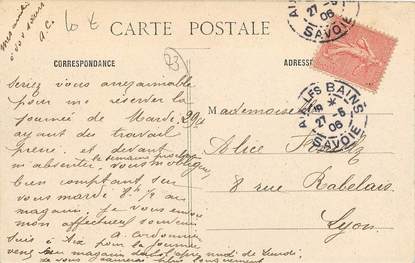 mes amitiés
à vos sœurs
A.C.
6 t
23
CARTE POSTALE
CORRESPONDANCE
ADRESSE
AIX-LES-BAINS
27-5
06
SAVOIE
AIX-LES-BAINS
27-5
06
SAVOIE
Seriez vous assez aimable
pour me réserver la
journée de Mardi 29,
ayant du travail
pressé. et devant
m'absenter la semaine prochaine
vous m'obligerez
bien comptant sur
vous mardi 8h 1/2 au
magasin, je vous envoie
mon affectueux souvenir
A. Cordonnier
Suis à Aix pour la journée,
venez au magasin dans l'après midi de lundi,
Mademoiselle
Alice
8 rue Rabelais
Lyon